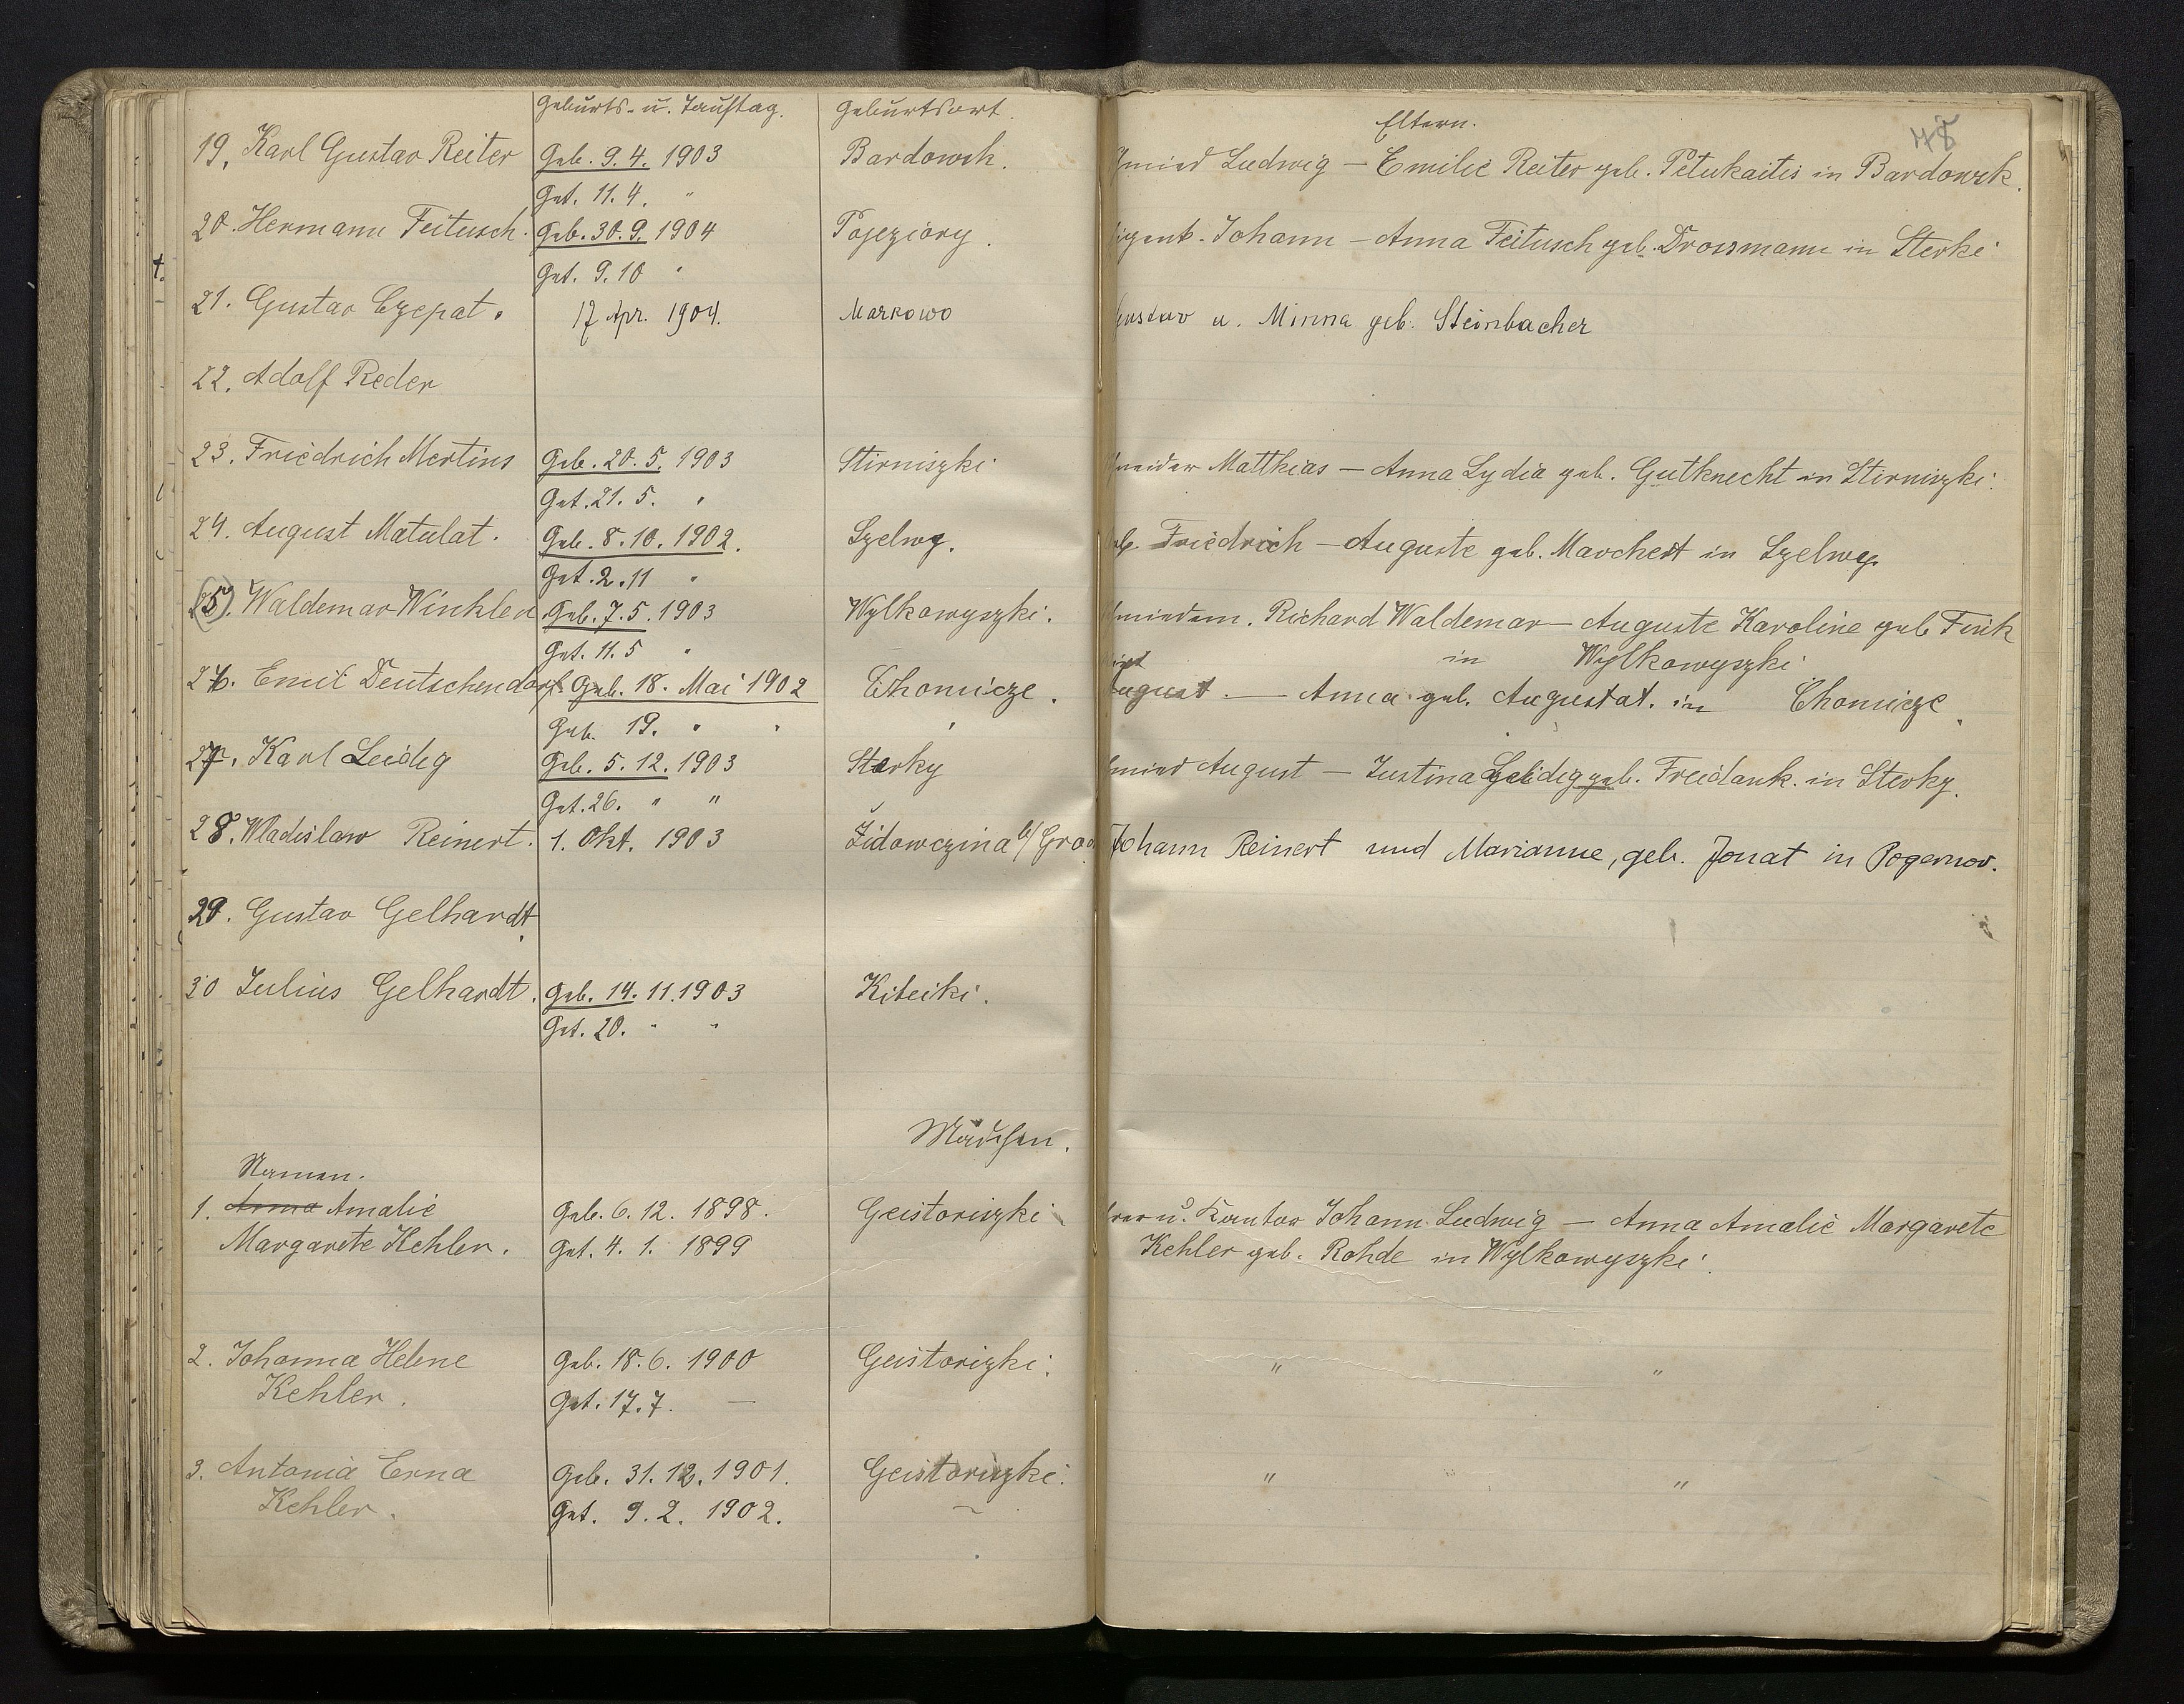 Geburts- u. Tauftag. Geburtsort. Eltern. 78
19. Karl Gustav Reiter Geb. 9. 4. 1903 Bardowsk. Ludwig — Emilie Reiter geb. Petukaitis in Bardowsk.
Get. 11. 4. "
20. Hermann Feitusch. Geb. 30. 9. 1904 Pojeziory. Johann — Anna Feitusch geb. Drossmann in Sterki
Get. 9. 10 "
21. Gustav Czepat. 17 Apr. 1904. Markowo Gustav u. Minna geb. Steinbacher
22. Adolf Reder
23. Friedrich Mertins Geb. 20. 5. 1903 Stirniszki Matthias — Anna Lydia geb. Gutknecht in Stirniszki.
Get. 21. 5. "
24. August Matulat. Geb. 8. 10. 1902. Szelwy. Friedrich — Auguste geb. Marchert in Szelwy.
Get. 2. 11 "
25. Waldemar Winkler Geb. 7. 5. 1903 Wylkowyszki. Richard Waldemar — Auguste Karoline geb. Fink
Get. 11. 5 " in Wylkowyszki
26. Emil Deutschendorf Geb. 18. Mai 1902 Chomicze. August — Anna geb. Augustat. in Chomicze
Get. 19. " "
27. Karl Leidig Geb. 5. 12. 1903 Sterky August — Justina Leidig geb. Freidank. in Sterky.
Get. 26. " "
28. Wladislaw Reinert. 1. Okt. 1903 Židowczina b/ Johann Reinert und Marianne, geb. Jonat in Pogernov.
29. Gustav Gelhardt.
30 Julius Gelhardt. Geb. 14. 11. 1903 Kiteiki.
Get. 20. " "
Mädchen.
Namen.
1. Anna Amalie Geb. 6. 12. 1898. Geistoriszki u. Kantor Johann Ludwig — Anna Amalie Margarete
Margarete Kehler. Get. 4. 1. 1899 Kehler geb. Rohde in Wylkowyszki.
2. Johanna Helene Geb. 18. 6. 1900 Geistoriszki. " "
Kehler. Get. 17. 7. —
3. Antonia Erna Geb. 31. 12. 1901. Geistoriszki. " "
Kehler. Get. 9. 2. 1902.